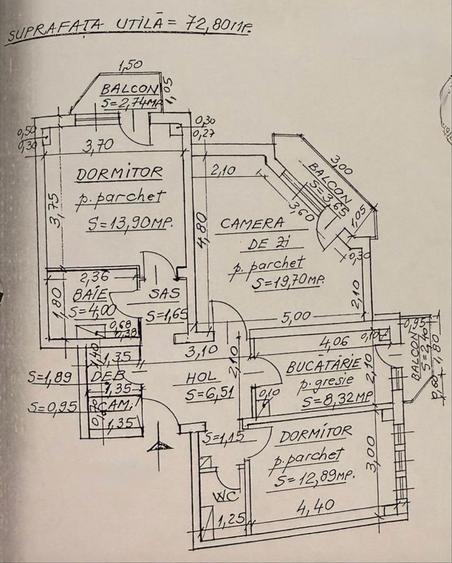 SUPRAFAȚA UTILĂ = 72,80MP.
1,50
BALCON
S=2,74MP
1,05
0,50
0,30
0,30
0,27
3,70
DORMITOR
p. parchet
S=13,90MP.
3,75
2,10
BALCON
S=3,65
3,00
1,05
3,60
0,30
4,80
CAMERA
DE ZI
p. parchet
S=19,70MP.
2,10
5,00
2,36
BAIE
S=4,00
1,80
SAS
S=1,65
0,68
0,38
3,10
2,10
4,06
0,10
BUCATĂRIE
p. gresie
S=8,32MP.
2,10
0,10
0,95
BALCON
S=2,45
1,80
0,60
S=1,89
1,40
1,35
DEB.
1,35
S=0,95
0,70
CAM.
1,35
HOL
S=6,51
S=1,15
DORMITOR
p. parchet
S=12,89MP.
3,00
WC
1,25
4,40